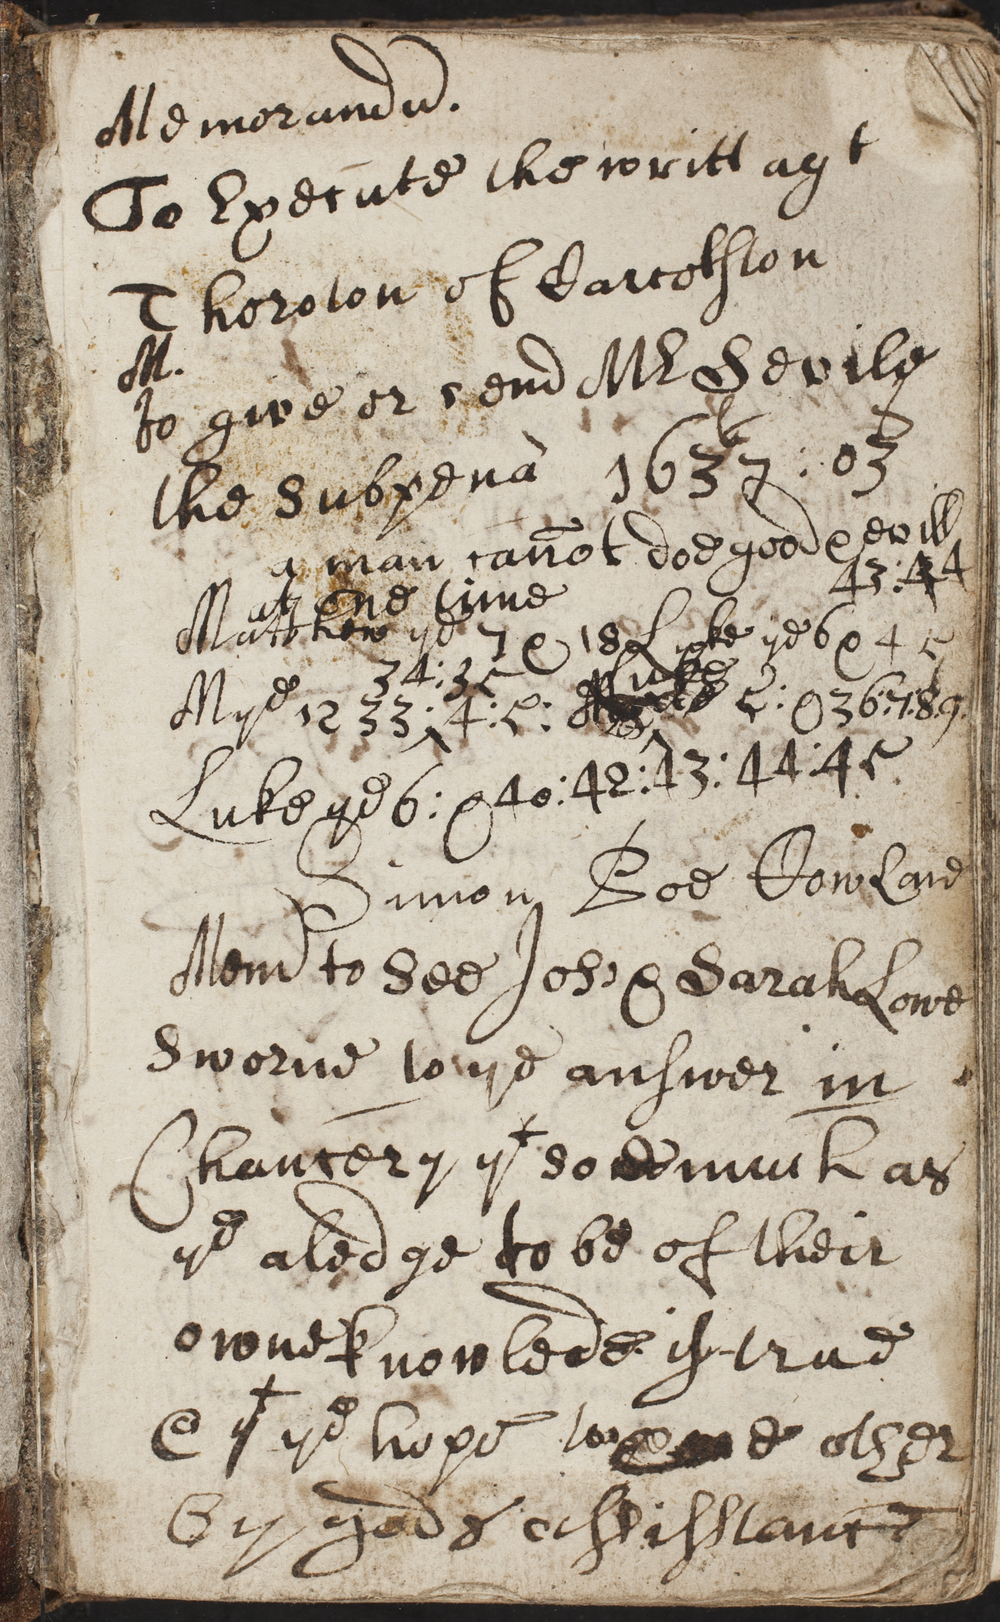 Memorandũ.
To Execute the writt agt
Thoroton of Carcolston
M.
to give or send Mr Sevile
the Subpena 1637 : 03
a man can̄ot doe good & evill
at one time 43:44
Matthew ye 7 & 18 Luke ye 6 & 45
34:35 Luke
M ye 12 33:4:5: 5: & 36:7:8:9
Luke ye 6: & 40:42:43:44:45
Simon Boe Cowland
Mem to See Jos: & Sarah Lowe
Sworne to ye answer in
Chancery yt so much as
ye aledge to be of their
owne knowledg is true
& yt ye hope to other
By gods assistance